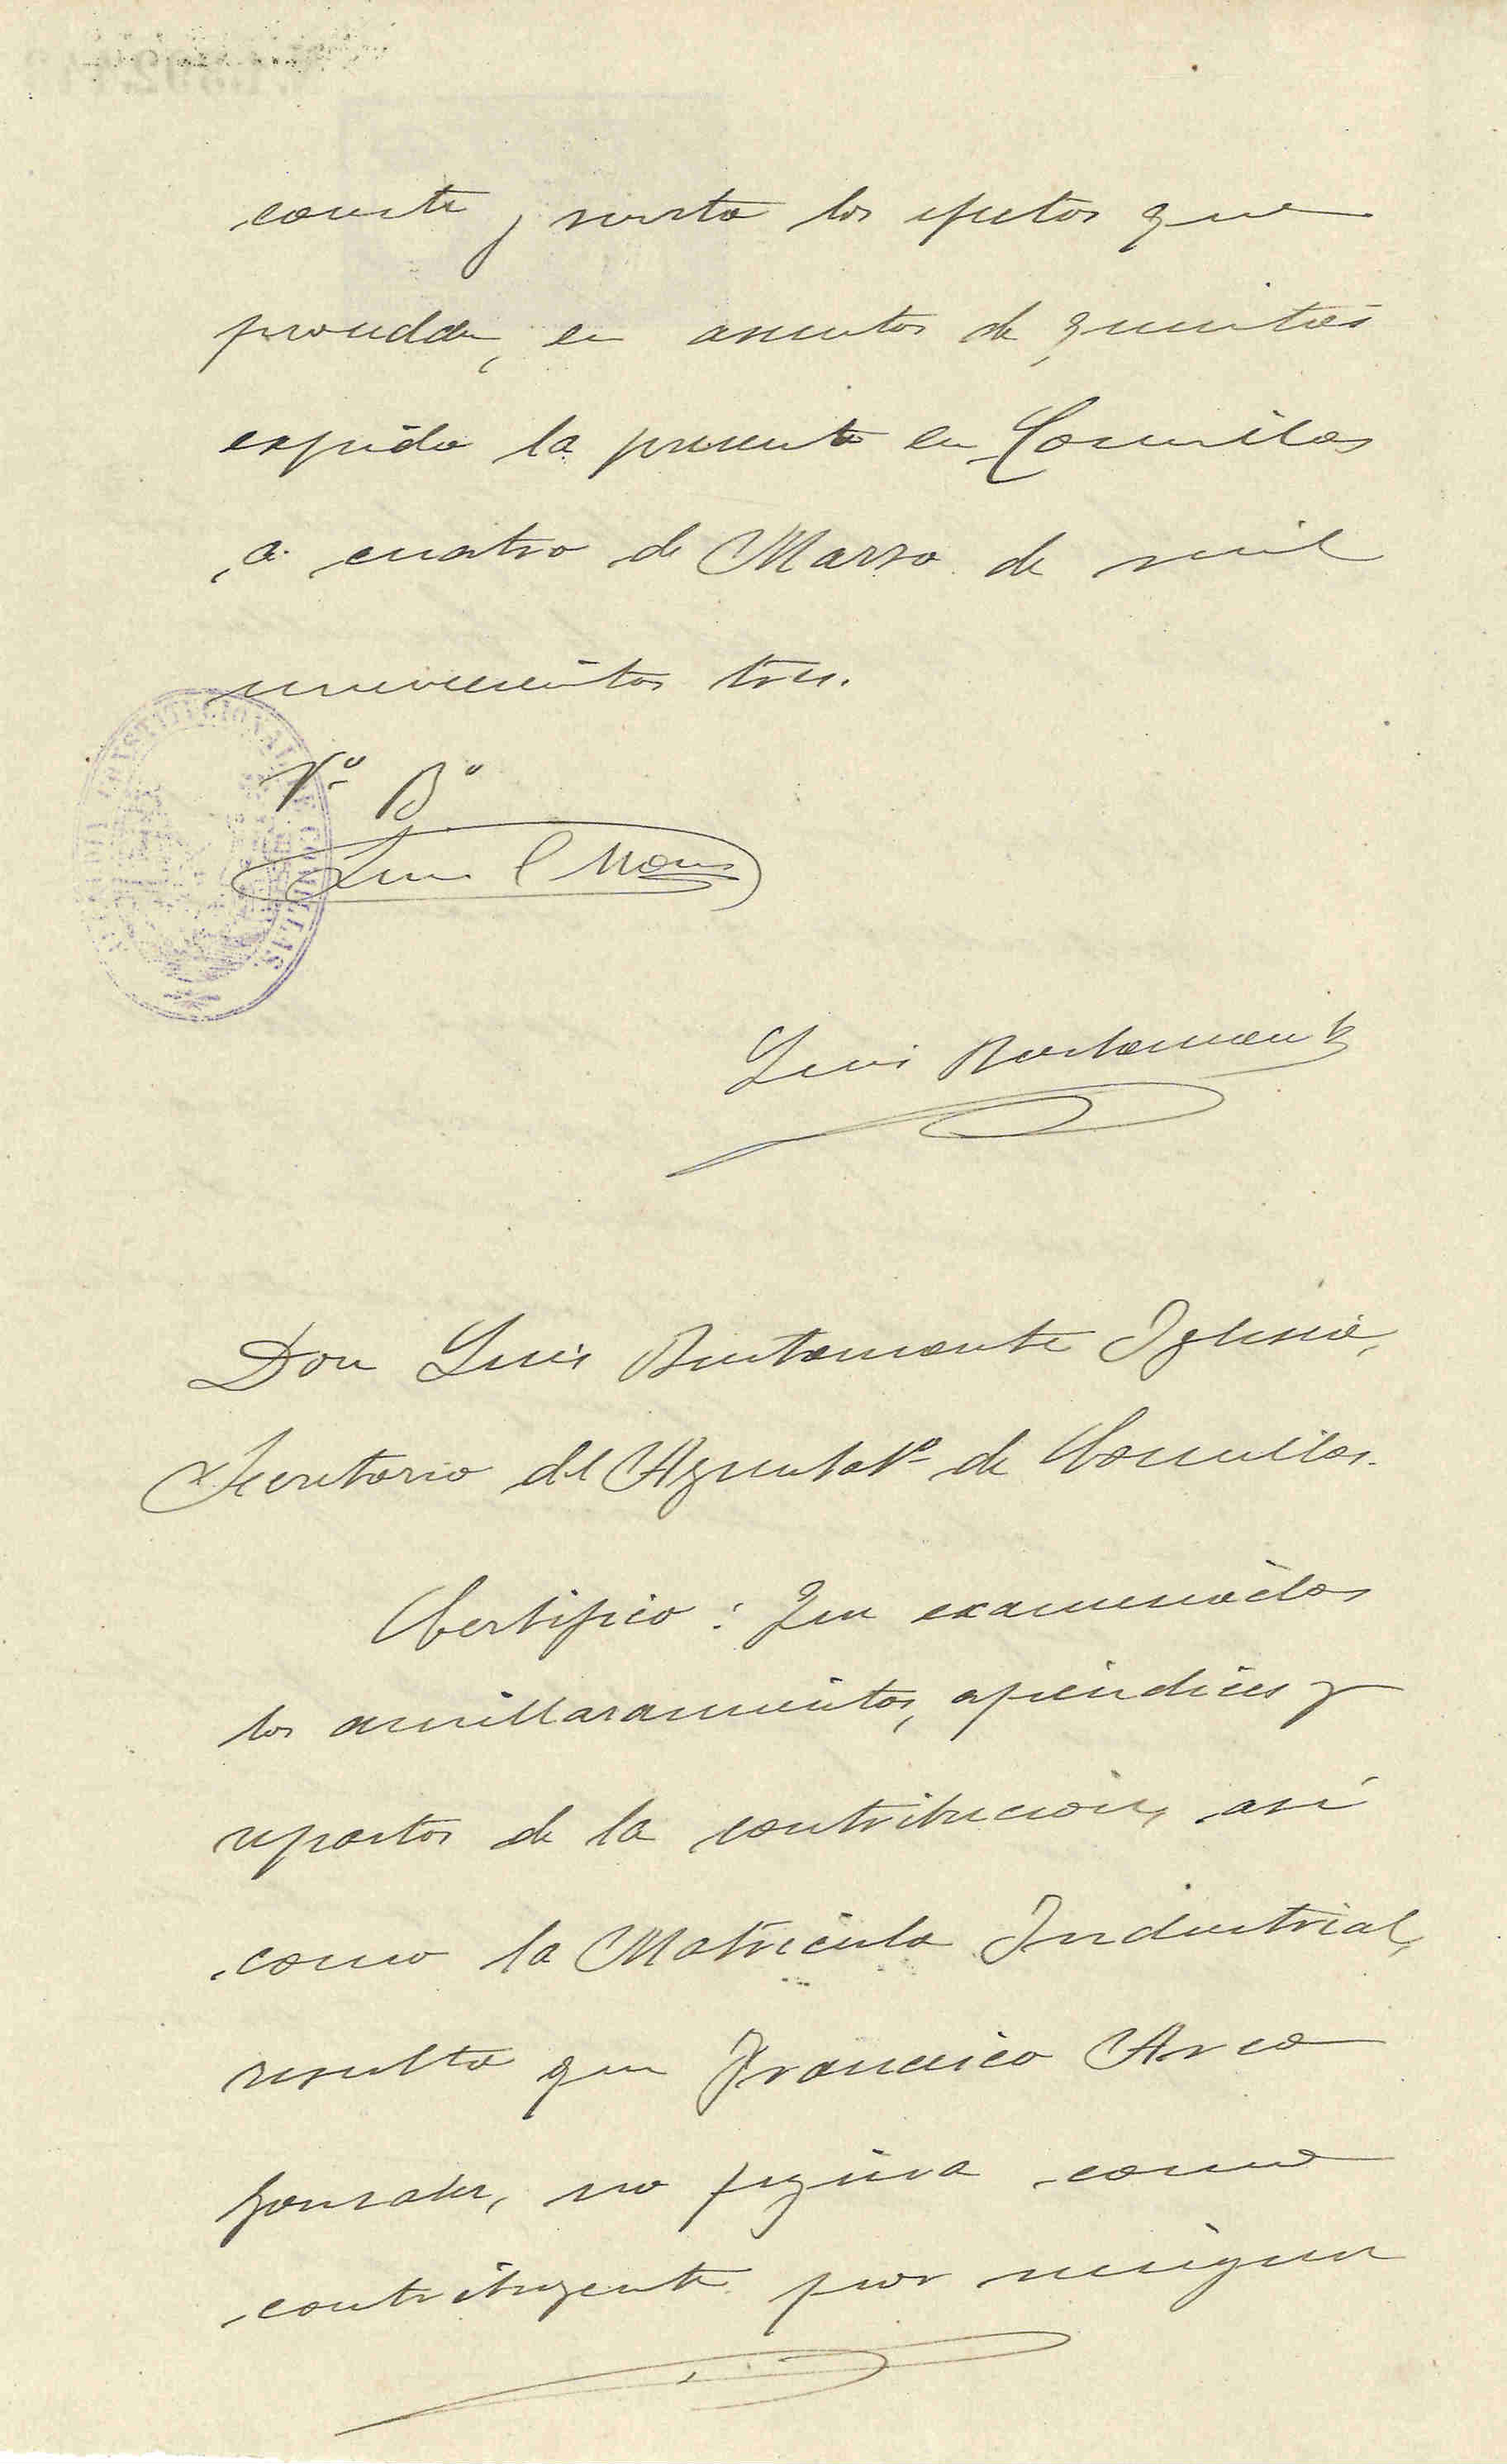 conste y surta los efectos que
procedan, en asuntos de quintas
expido la presente en Comillas
a cuatro de Marzo de mil
novecientos tres.
Vº Bº
CONSTITUCIONAL DE COMILLAS
Luis Bustamante
Don Luis Bustamante Iglesia,
Secretario del Ayuntatº de Comillas.
Certifico: Que examinados
los amillaramientos, apéndices y
repartos de la contribución, así
como la Matrícula Industrial,
resulta que Francisco Arce
Gonzalez, no figura como
contribuyente por ningun